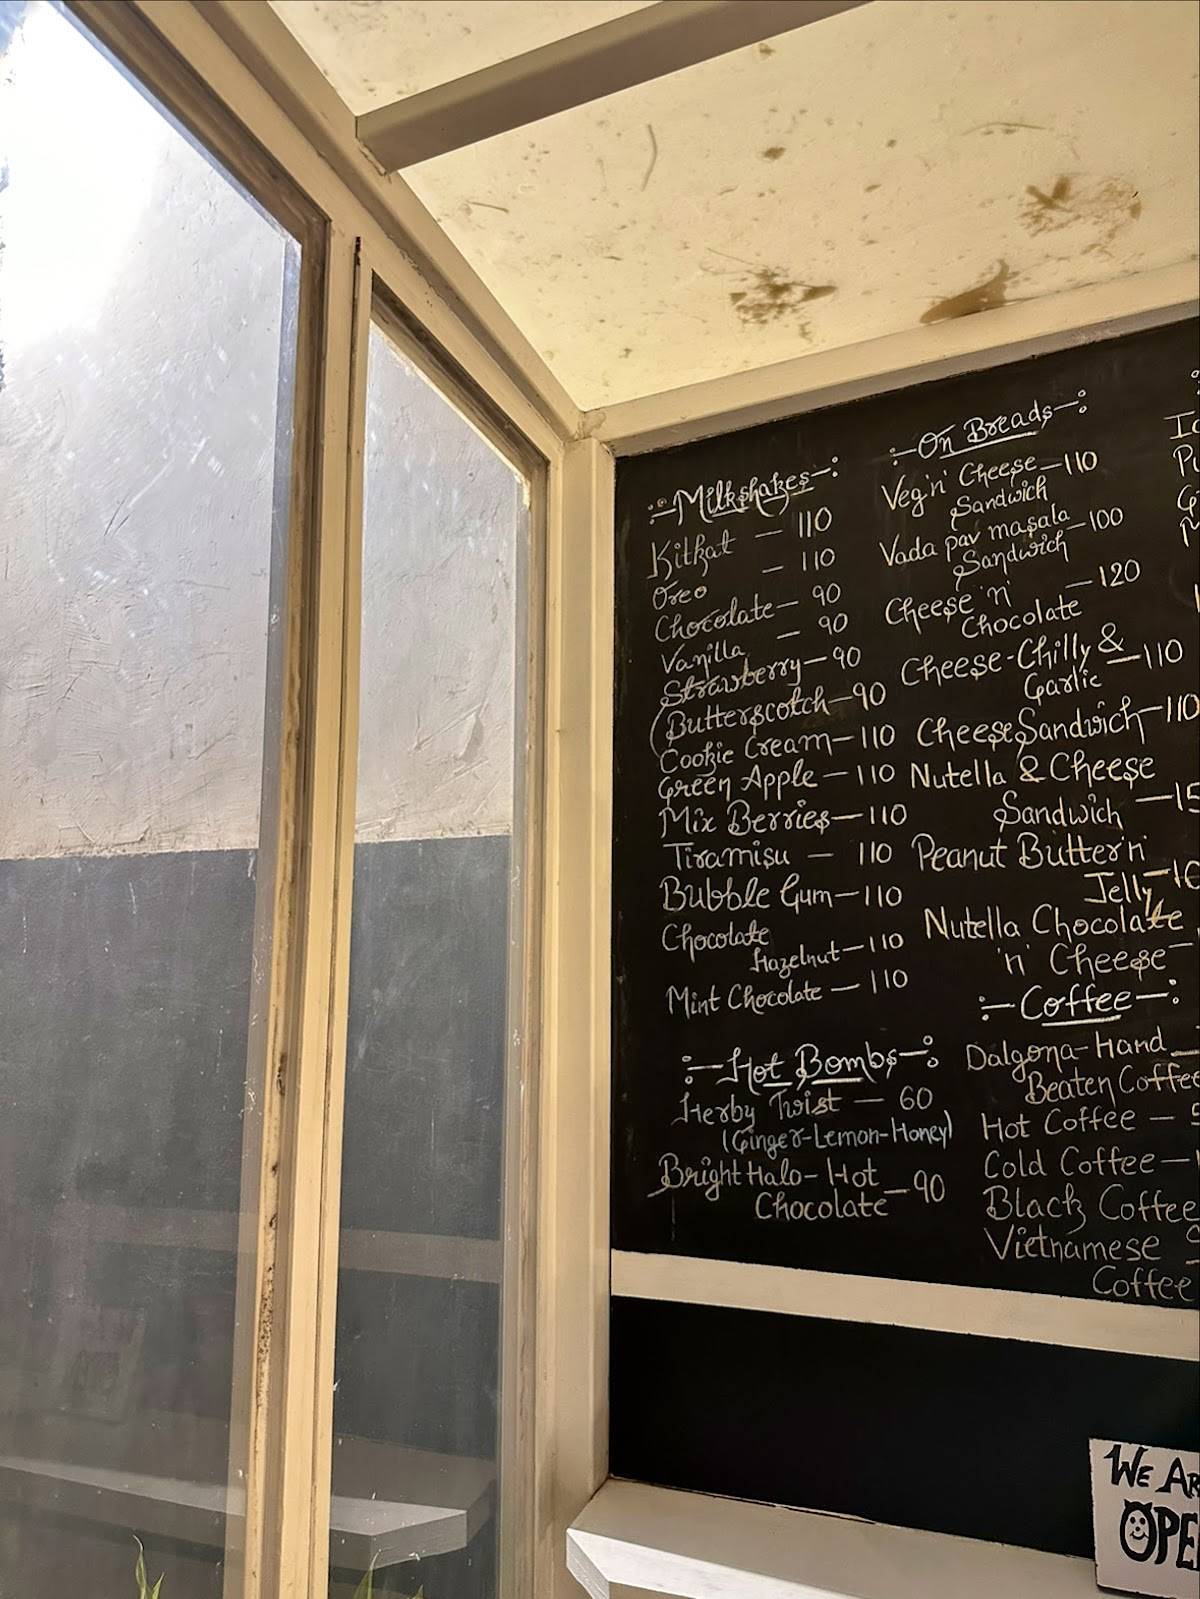 Milkshakes
Kitkat — 110
Oreo — 110
Chocolate — 90
Vanilla — 90
Strawberry — 90
Butterscotch — 90
Cookie Cream — 110
Green Apple — 110
Mix Berries — 110
Tiramisu — 110
Bubble Gum — 110
Chocolate
Hazelnut — 110
Mint Chocolate — 110
Hot Bombs
Herby Twist — 60
(Ginger-Lemon-Honey)
Bright Halo - Hot
Chocolate — 90
On Breads
Veg 'n' Cheese — 110
Sandwich
Vada pav masala
Sandwich — 100
Cheese 'n' — 120
Chocolate
Cheese-Chilly &
Garlic — 110
Cheese Sandwich — 110
Nutella & Cheese
Sandwich
Peanut Butter n'
Jelly
Nutella Chocolate
'n' Cheese
Coffee
Dalgona-Hand
Beaten Coffee
Hot Coffee
Cold Coffee
Black Coffee
Vietnamese
Coffee
WE